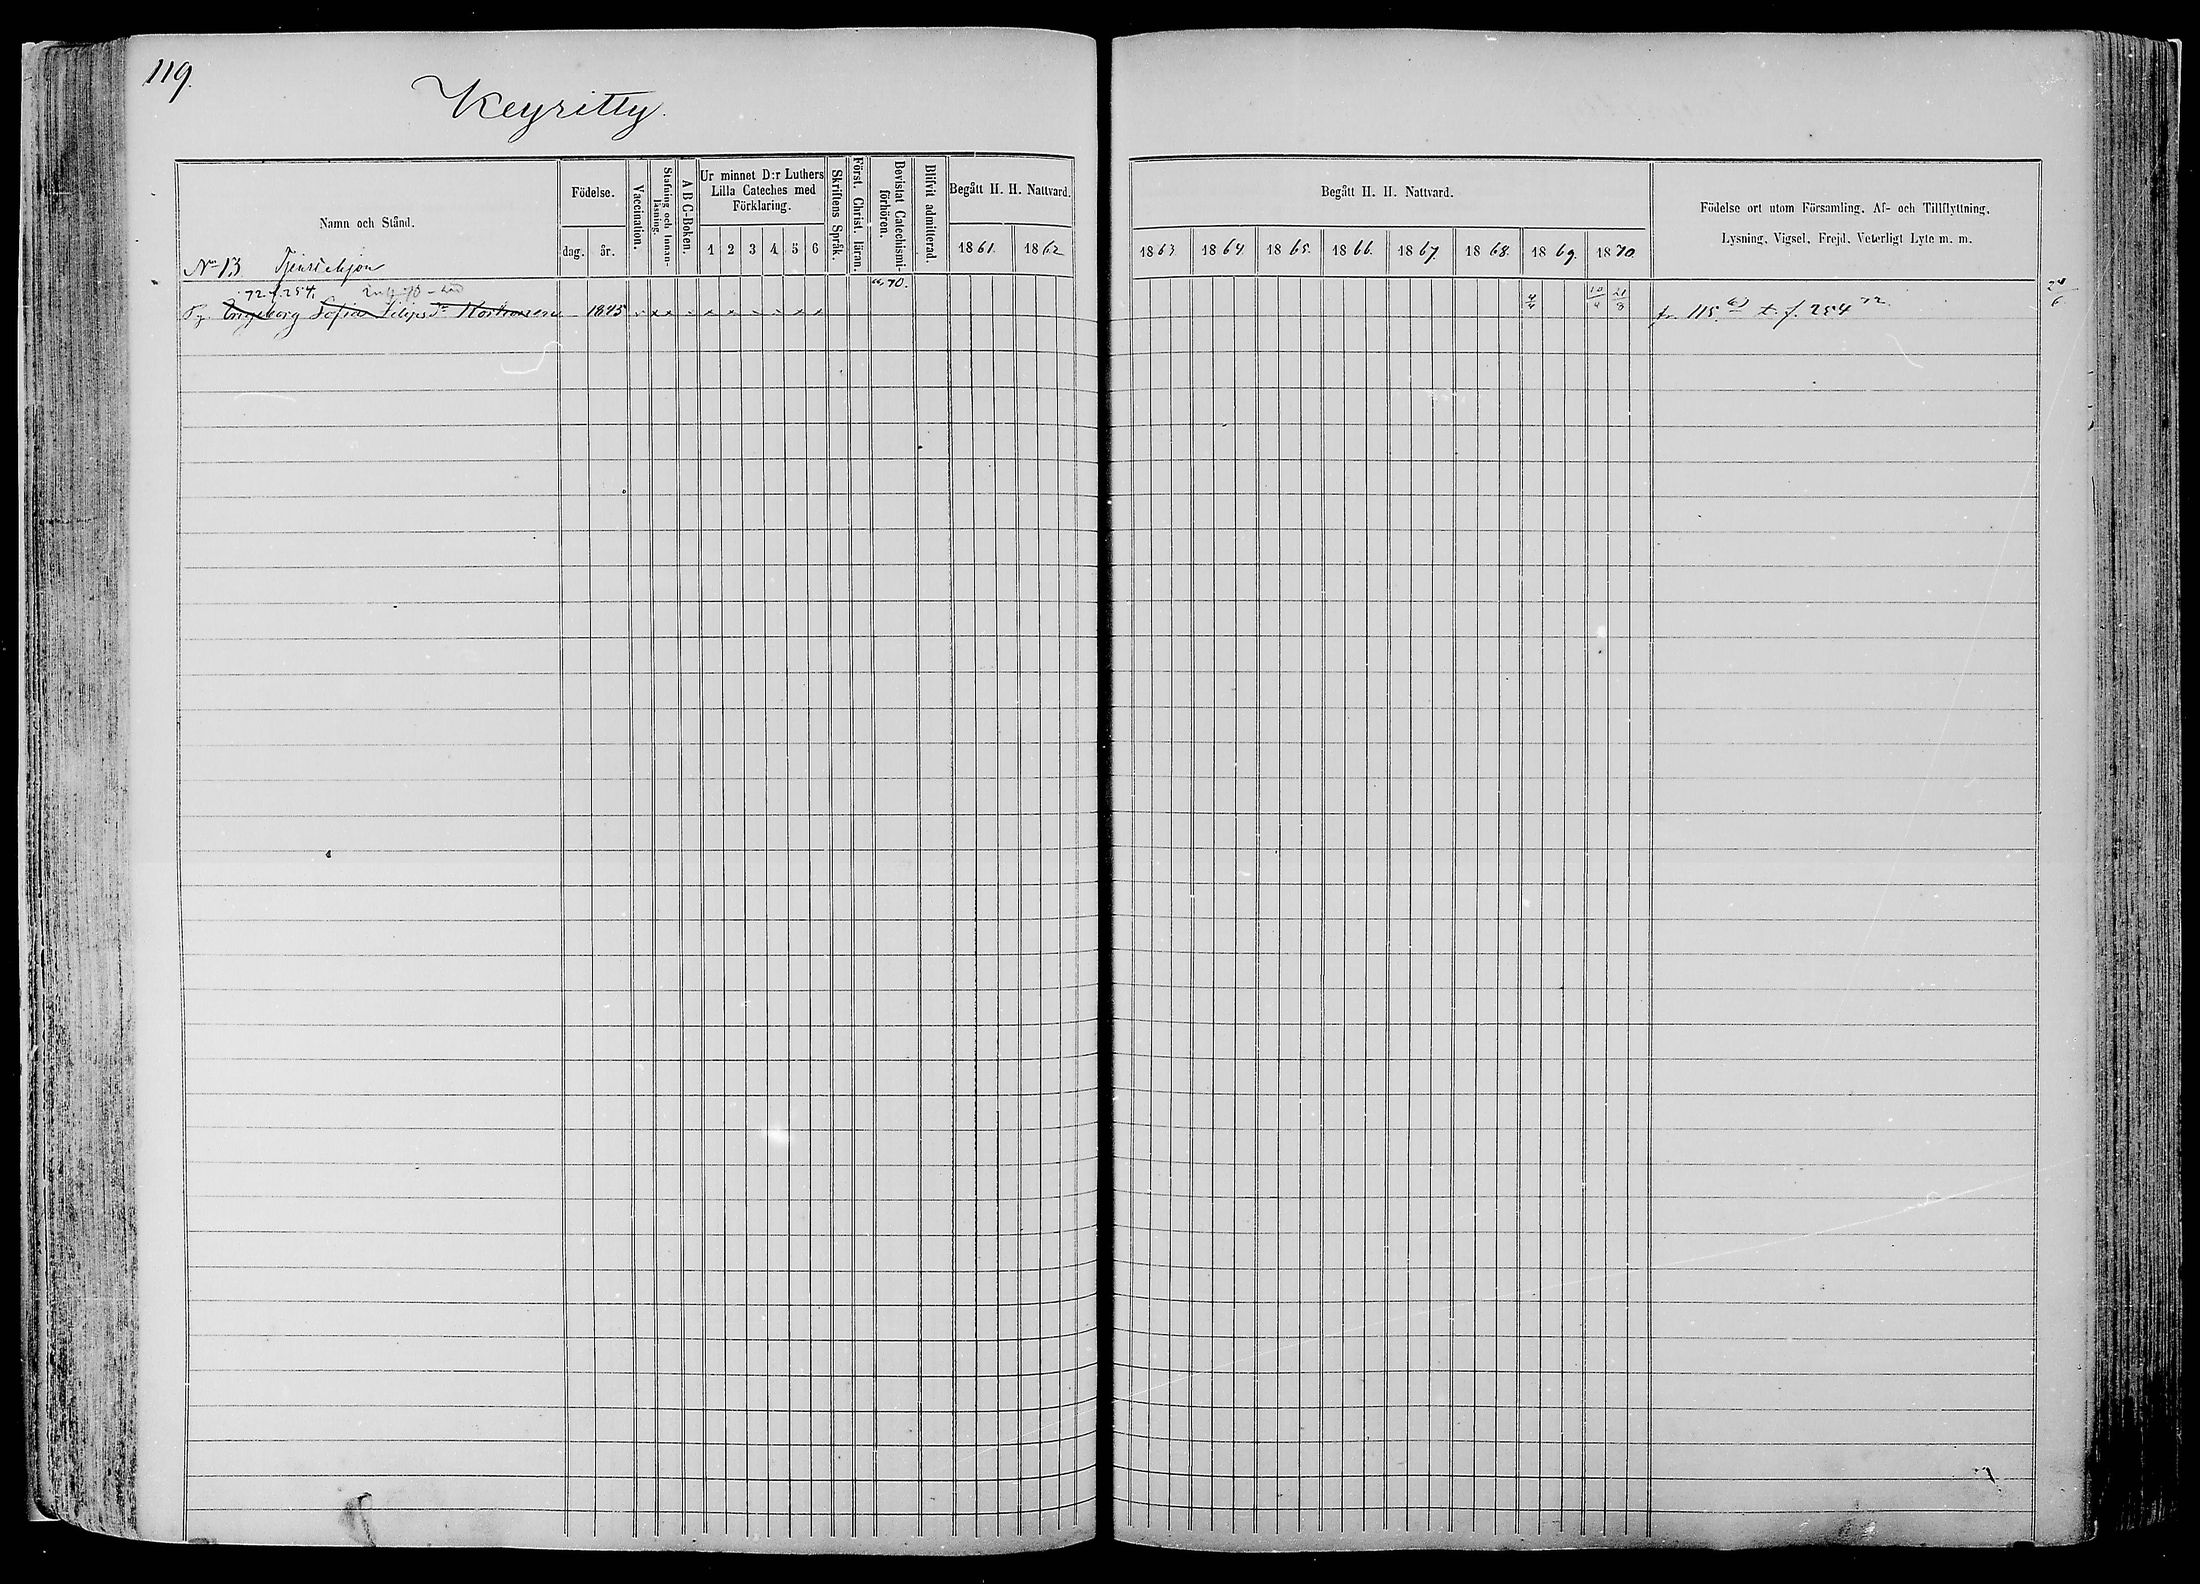 119.
Keyritty.
Namn och Stånd.
Födelse.
dag. år.
Vaccination.
Stafning och Innanläsning.
A B C-Boken.
Ur minnet D:r Luthers Lilla Cateches med Förklaring.
1 2 3 4 5 6
Skriftens Språk.
Först. Christ. läran.
Bevistat Catechismiförhören.
Blifvit admitterad.
Begått H. H. Nattvard.
1861. 1862
Begått H. H. Nattvard.
1863. 1864. 1865. 1866. 1867. 1868. 1869. 1870.
Födelse ort utom Församling, Af- och Tillflyttning,
Lysning, Vigsel, Frejd, Veterligt Lyte m. m.
No 13 Tjenstehjon
72 f. 254.
70.
Pg. Ingeborg Sofia Filips dr 1845
4/4 10/4 21/8
fr. 115. t. f. 254 72